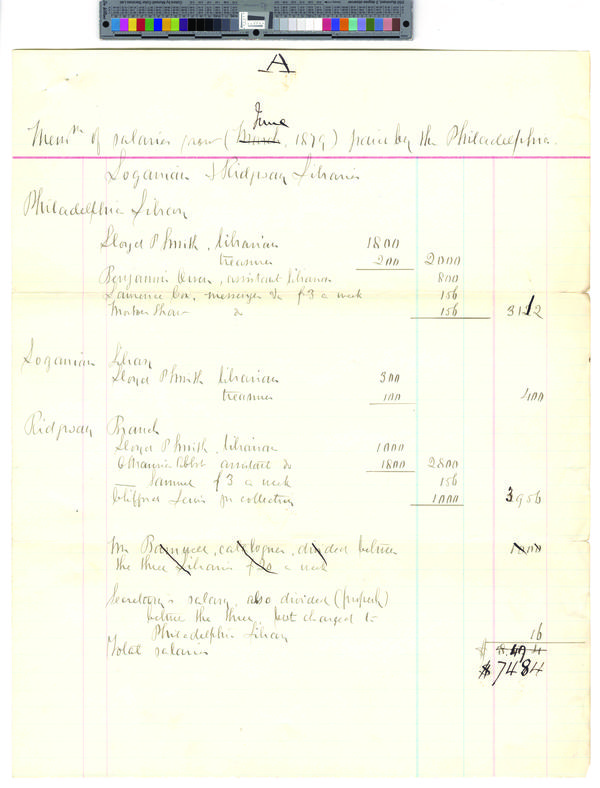 A
June
Mem^m of salaries now (March, 1879) paid by the Philadelphia
Loganian & Ridgway Libraries
Philadelphia Library
Lloyd P Smith, librarian 1800
treasurer 200 2000
Benjamin, assistant librarian 800
Lawrence, messenger &c $3 a week 156
Shaw do 156 3112
Loganian Library
Lloyd P Smith librarian 300
treasurer 100 400
Ridgway Branch
Lloyd P Smith, librarian 1000
assistant do 1800 2800
Samuel $3 a week 156
Clifford Lewis jr collecting 1000 3956
Mr, cataloguer, divided between 1000
the three Libraries $20 a week
Secretary's salary also divided (properly)
between the three, but charged to
Philadelphia Library 16
Total salaries $
$7484